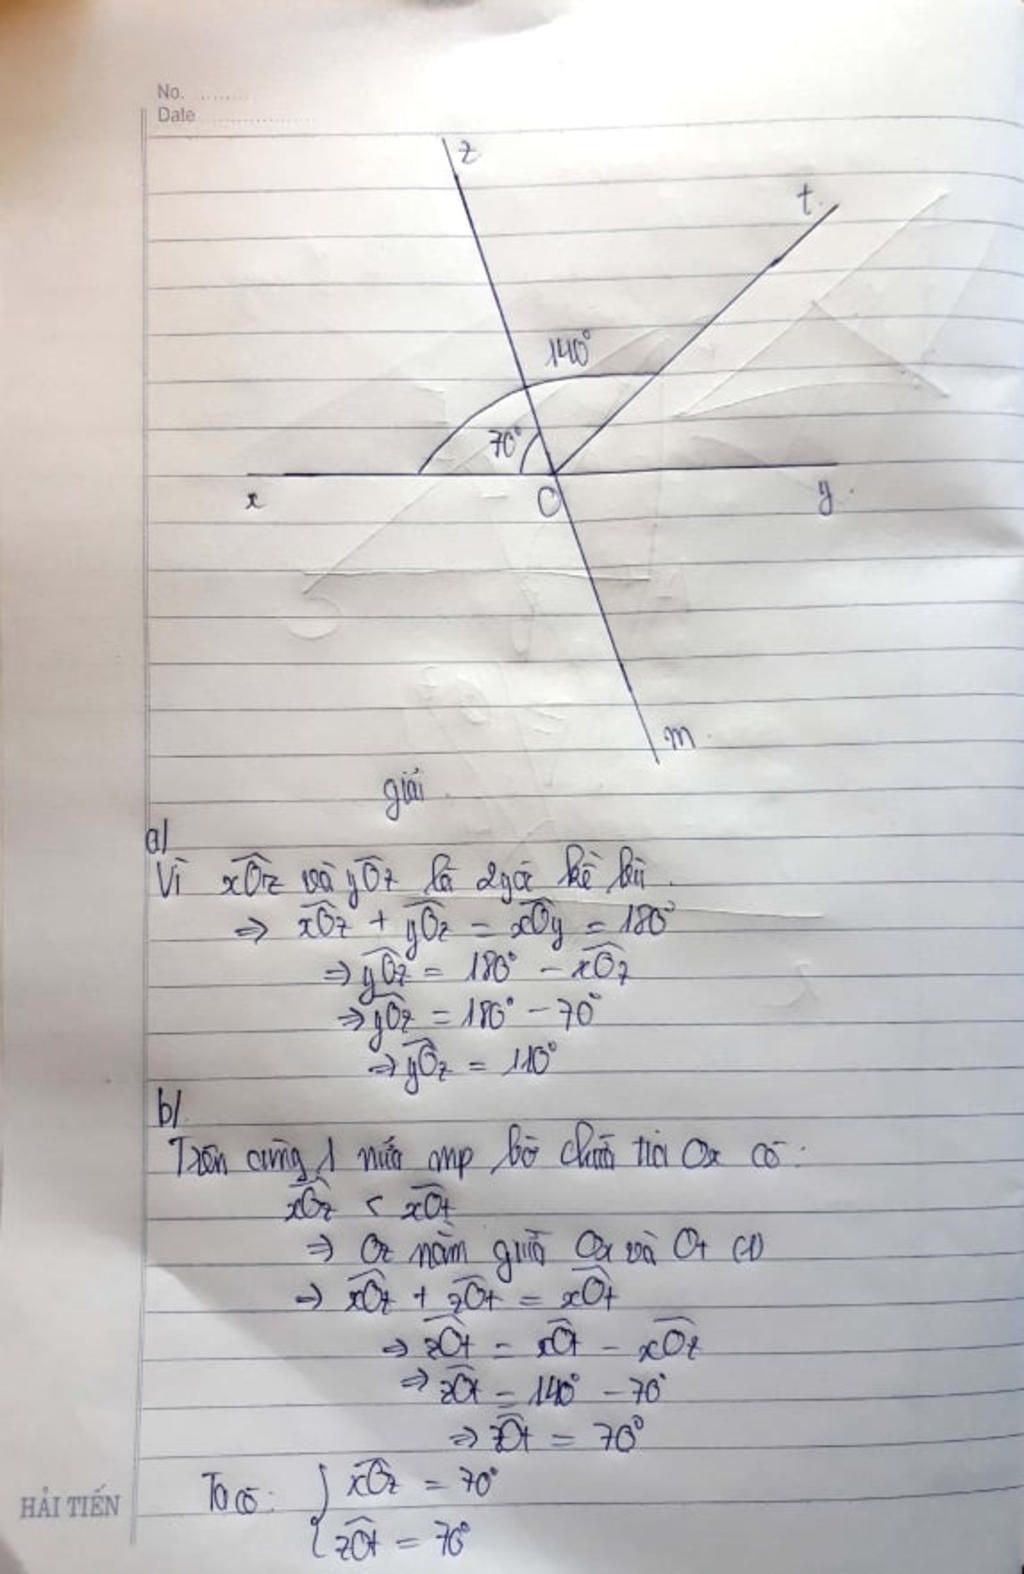 No. .........
Date ..................
z
t
140°
70°
x
O
y
m
giải
a/
Vì xOz và yOz là 2 góc kề bù.
⇒ xOz + yOz = xOy = 180°
⇒ yOz = 180° - xOz
⇒ yOz = 180° - 70°
⇒ yOz = 110°
b/
Trên cùng 1 nửa mp bờ chứa tia Ox có:
xOz < xOt
⇒ Oz nằm giữa Ox và Ot (1)
⇒ xOz + zOt = xOt
⇒ zOt = xOt - xOz
⇒ zOt = 140° - 70°
⇒ zOt = 70°
Ta có: { xOz = 70°
zOt = 70°
HẢI TIẾN